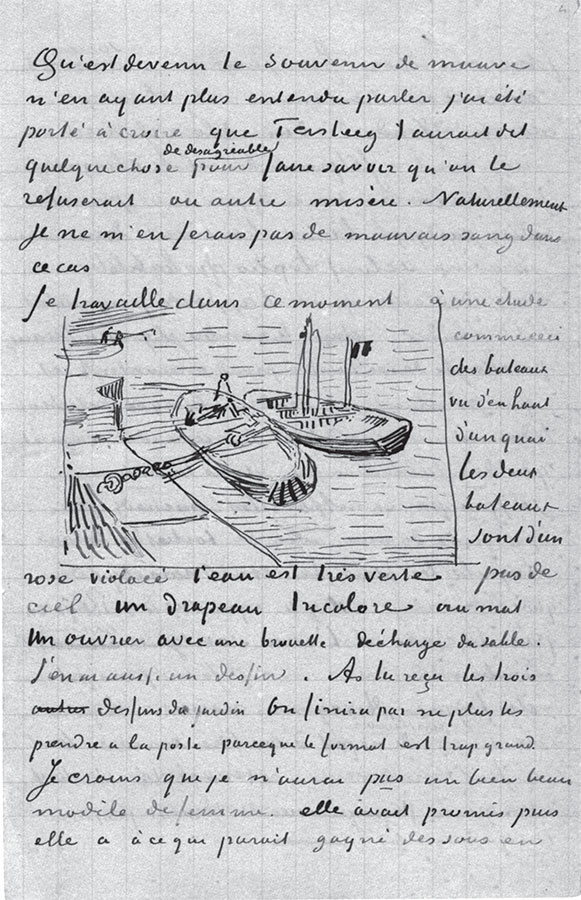 Qu'est devenu le souvenir de mauve
n'en ayant plus entendu parler j'ai été
porté à croire que Tersteeg t'aurait dit
de désagréable
quelque chose pour faire savoir qu'on le
refuserait ou autre misère. Naturellement
je ne m'en ferais pas de mauvais sang dans
ce cas
Je travaille dans ce moment à une etude
comme ceci
des bateaux
vu d'en haut
d'un quai
les deux
bateaux
sont d'un
rose violacé l'eau est très verte pas de
ciel un drapeau tricolore au mat
Un ouvrier avec une brouette décharge du sable.
J'en ai aussi un dessin. As tu reçu les trois
autres dessins du jardin On finira par ne plus les
prendre a la poste parceque le format est trop grand.
Je crains que je n'aurai pas un bien beau
modèle de femme. elle avait promis puis
elle a à ce que parait gagné des sous en